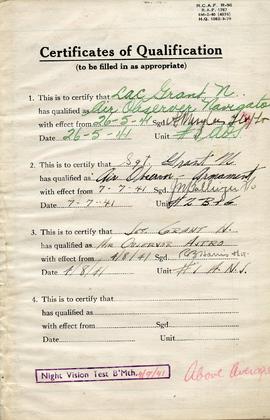 R.C.A.F. R-96
Certificates of Qualification
(to be filled in as appropriate)
1. This is to certify that LAC Grant, N.
has qualified as Air Observer Navigator
with effect from 26-5-41 Sgd.
Date 26-5-41 Unit
2. This is to certify that Sgt. Grant N.
has qualified as Air Observer Armament
with effect from 7-7-41 Sgd.
Date 7-7-41 Unit #2 B&G
3. This is to certify that Sgt. GRANT N.
has qualified as AIR OBSERVER ASTRO
with effect from 4/8/41 Sgd.
Date 4/8/41 Unit #1 A.N.S.
4. This is to certify that
has qualified as
with effect from Sgd.
Date Unit
Night Vision Test B'Mth. /41 Above Average